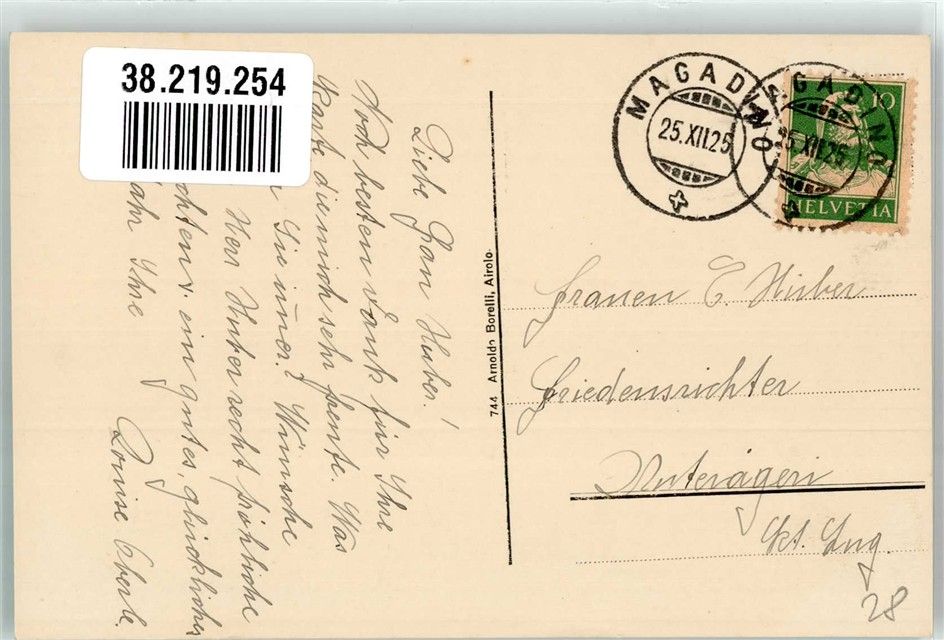 38.219.254
Liebe Frau Huber!
Noch besten Dank für Ihre
Karte die mich sehr freute. Was
Sie immer? Wünsche
Herr Huber recht fröhliche
ein gutes, glückliches
Ihre
Louise Eberle.
744 Arnoldo Borelli, Airolo
MAGADINO
25.XII.25
MAGADINO
25.XII.25
10
HELVETIA
Frauen E. Huber
Friedensrichter
Unterägeri
Kt. Zug.
28